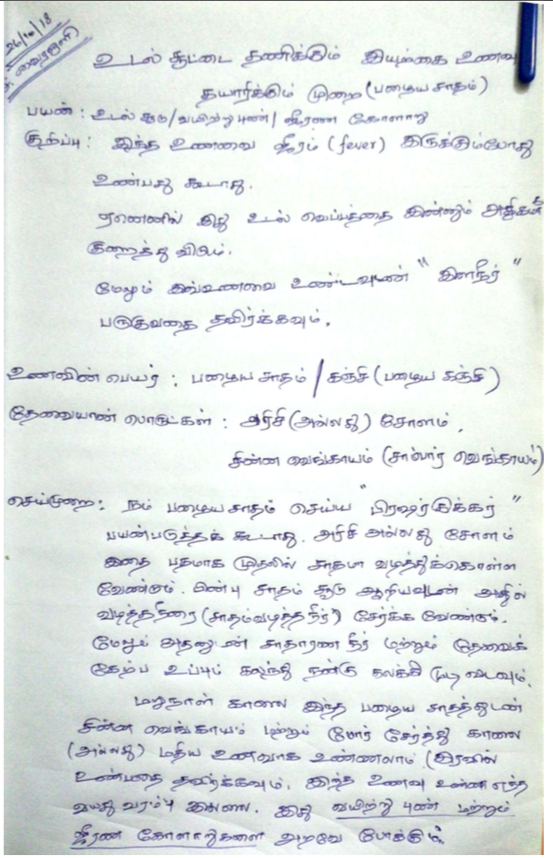 26/10/18
உடல் சூட்டை தணிக்கும் இயற்கை உணவு
தயாரிக்கும் முறை (பழைய சாதம்)
பயன் : உடல் சூடு / வயிற்று புண் / ஜீரண கோளாறு
குறிப்பு : இந்த உணவை ஜீரம் (fever) இருக்கும்போது
உண்பது கூடாது.
ஏனெனில் இது உடல் வெப்பத்தை இன்னும் அதிகமாக
குறைத்து விடும்.
மேலும் இவ்உணவை உண்டவுடன் " இளநீர் "
பருகுவதை தவிர்க்கவும்.
உணவின் பெயர் : பழைய சாதம் / கஞ்சி (பழைய கஞ்சி)
தேவையான பொருட்கள் : அரிசி (அல்லது) சோளம்,
சின்ன வெங்காயம் (சாம்பார் வெங்காயம்)
செய்முறை : நம் பழைய சாதம் செய்ய " பிரஷர் குக்கர் "
பயன்படுத்தக் கூடாது. அரிசி அல்லது சோளம்
இதை பதமாக முதலில் சாதமா வடித்துக்கொள்ள
வேண்டும். பின்பு சாதம் சூடு ஆறியவுடன் அதில்
வடித்தநீரை (சாதம்வடித்த நீர்) சேர்க்க வேண்டும்.
மேலும் அதனுடன் சாதாரண நீர் மற்றும் தேவைக்
கேற்ப உப்பும் கலந்து நன்கு கலக்கி மூடி விடவும்.
மறுநாள் காலை இந்த பழைய சாதத்துடன்
சின்ன வெங்காயம் மற்றும் மோர் சேர்த்து காலை
(அல்லது) மதிய உணவாக உண்ணலாம் (இரவில்
உண்பதை தவிர்க்கவும். இந்த உணவு உண்ண எந்த
வயது வரம்பு இல்லை. இது வயிற்று புண் மற்றும்
ஜீரண கோளாறுகளை அறவே போக்கும்.